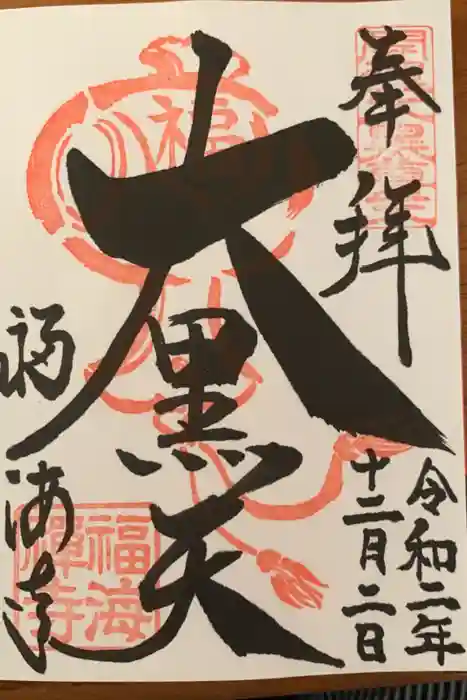 奉拝
令和二年
十二月二日
大黒天
福
福海寺
福海
禪寺